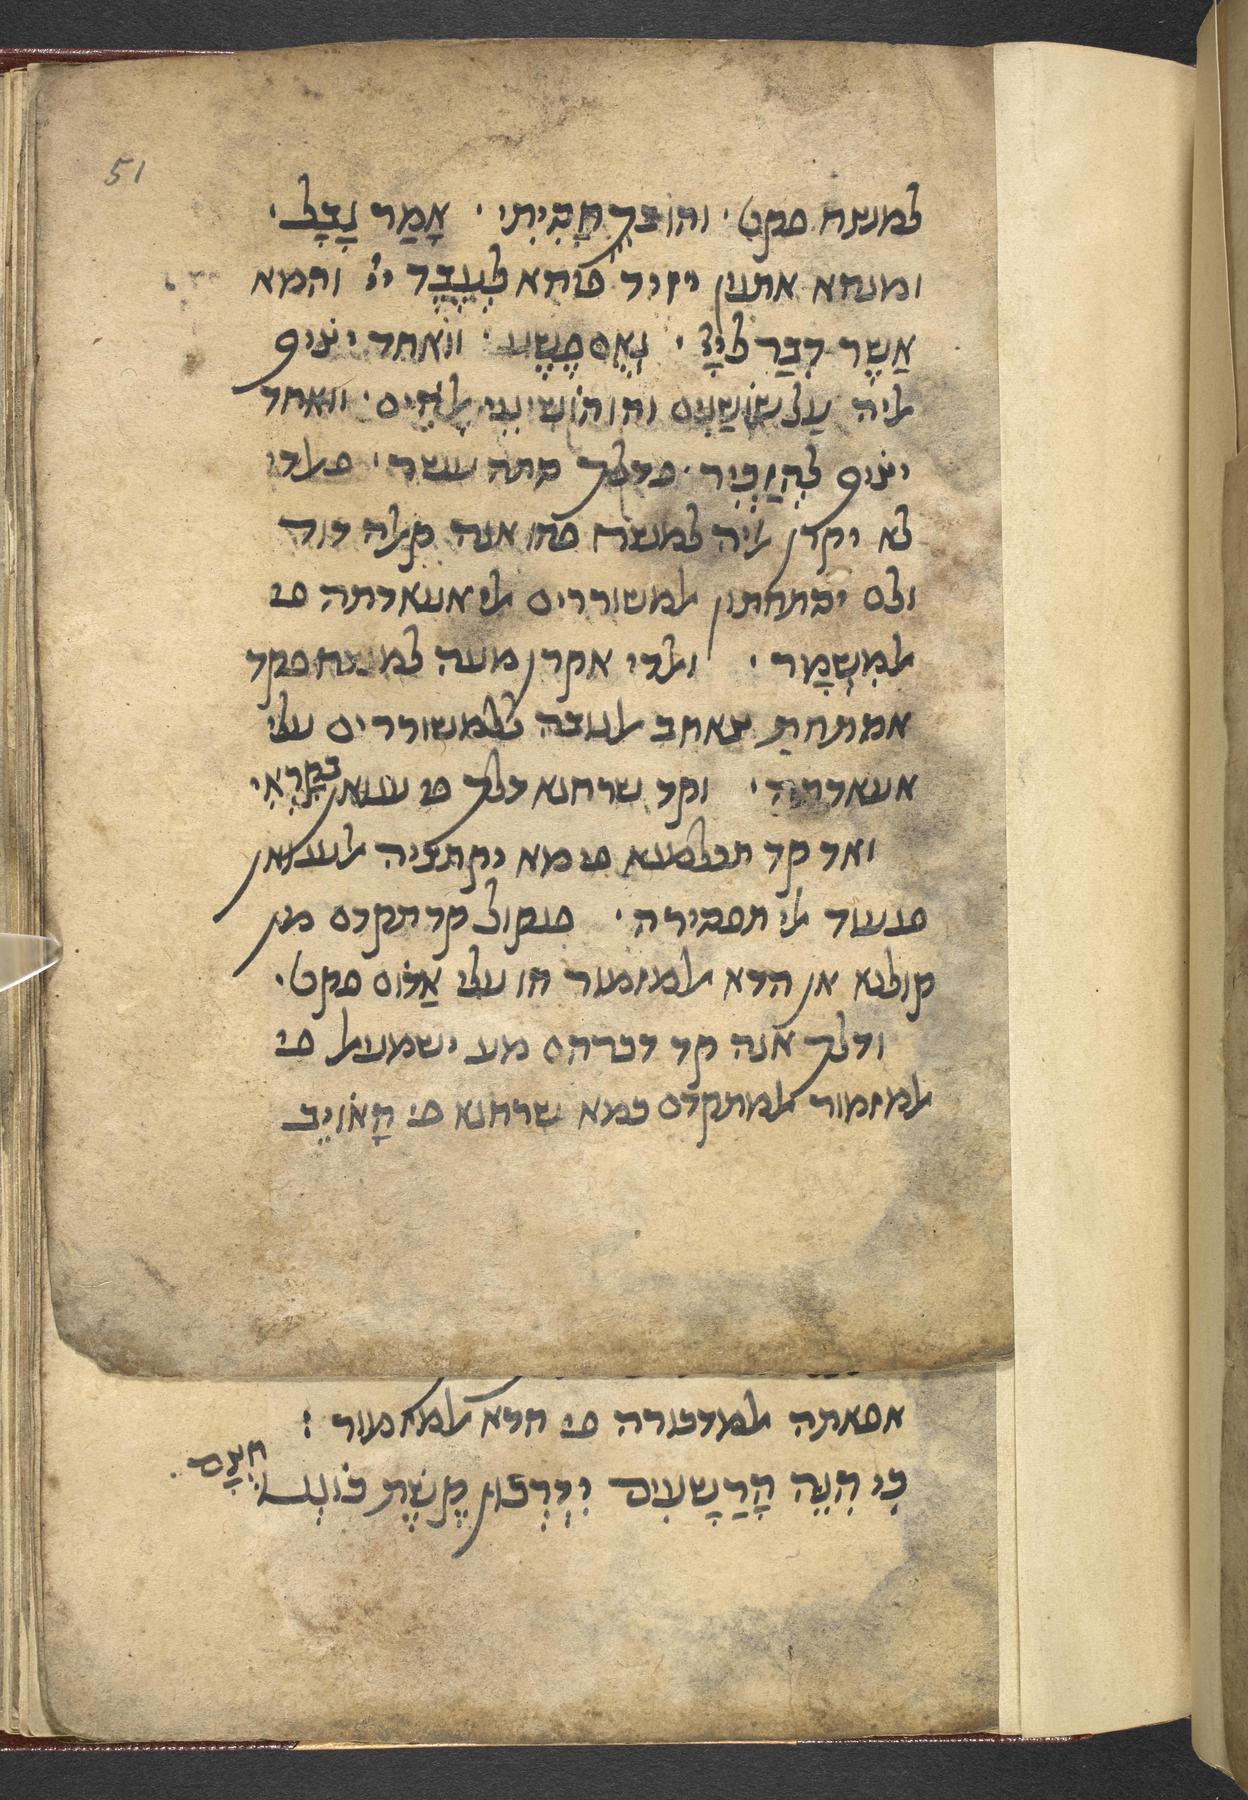 51
למנצח פקט· והו בךְ חָסִיתִי· אָמַר נָבָל·
ומנהא אתנין יזיד פיהא לְעֶבֶד יי והמא
אֲשֶׁר דִבַר לַיָיָ· נְאֻם פֶּשַׁע· וואחד יציף
אליה עַל שׁוֹשַׁנִים והו הוֹשִׁיעֵנִי אֱלֹהִים· וואחד
יציף לְהַזְכִּיר· פדלך סתה עשר· פאלדי
לא יקרן אליה למנצח פהו אנה קאלה דוד
ולם יכתחתון אלמשוררים אלי אעאדתה פי
אלמִשְׁמָר· ואלדי אקרן מעה למנצח פקד
אמתחת צאחב אלנובה ללמשוררים עלי
אעאדתה· וקד שרחנא דלך פי ענואן בְּקָרְאִי
ואד קד תכלמנא פי מא יקתציה אלענואן
פנעוד אלי תפסירה· פנקול קד תקדם מן
קולנא אן הדא אלמזמור הו עלי אֱדוֹם פקט·
ודלך אנה קד דכרהם מע ישמעאל פי
אלמזמור אלמתקדם כמא שרחנא פי הָאוֹיֵב
אפאתה אלמדכורה פי הדא אלמזמור :
כִּי הִנֵּה הָרְשָׁעִים יִדְרְכוּן קֶשֶׁת כּוֹנְנוּ חִצָּם